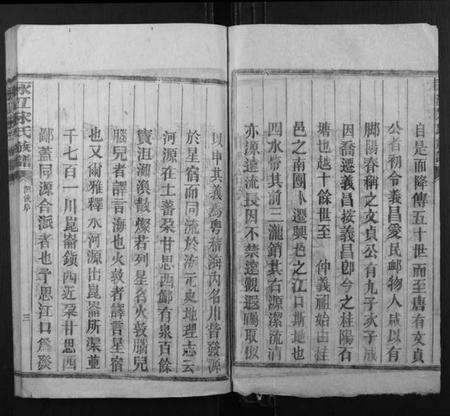 自是而降傳五十世而至唐有文貞
公者初令義昌愛民邮物人咸以有
腳陽春稱之文貞公有九子次子成
因喬遷義昌按義昌即今之桂陽右
塘也越十餘世至　仲義祖始由桂
邑之南圖卜遷興邑之江口斯地也
四水帶其前三瀧鎖其右源潔流清
亦源遠流長因不禁遠觀遐矚取俶
以申其義焉粤稽海內名川皆發源
於星宿而同流於海元史地理志云
河源在土蕃朶甘思西鄙有泉百餘
竇沮洳渙散燦若列星名火敦腦兒
腦兒者譯言海也火敦者譯言星宿
也又爾雅釋水河源出崑崙所渠並
千七百一川崑崙鎮西近朶甘思西
鄙蓋同源合派者也予思江口為發
江宋氏族譜
源流序
三